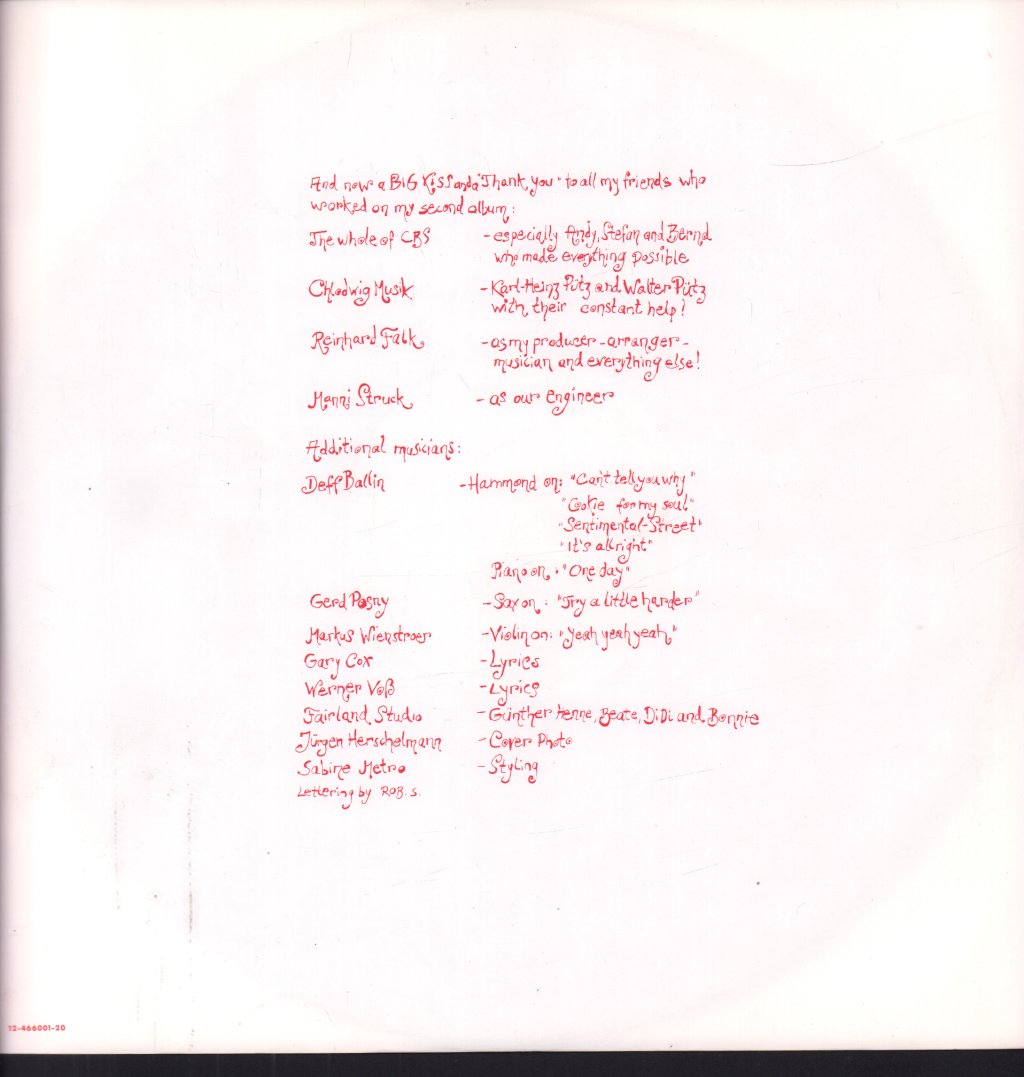 And now a BIG Kiss and a "Thank you" to all my friends who
worked on my second album:
The whole of CBS - especially Andy, Stefan and Bernd
who made everything possible
Chlodwig Musik - Karl-Heinz Pütz and Walter Pütz
with their constant help!
Reinhard Falk - as my producer - arranger -
musician and everything else!
Manni Struck - as our Engineer
Additional musicians:
Deff Ballin - Hammond on: "Can't tell you why"
"Cookie for my soul"
"Sentimental-Street"
"It's allright"
Piano on: "One day"
Gerd Posny - Sax on: "Try a little harder"
Markus Wienstroer - Violin on: "Yeah yeah yeah"
Gary Cox - Lyrics
Werner Voß - Lyrics
Fairland Studio - Günther Henne, Beate, DiDi and Bonnie
Jürgen Herschelmann - Cover Photo
Sabine Metro - Styling
Lettering by ROB. S.
12-466001-20